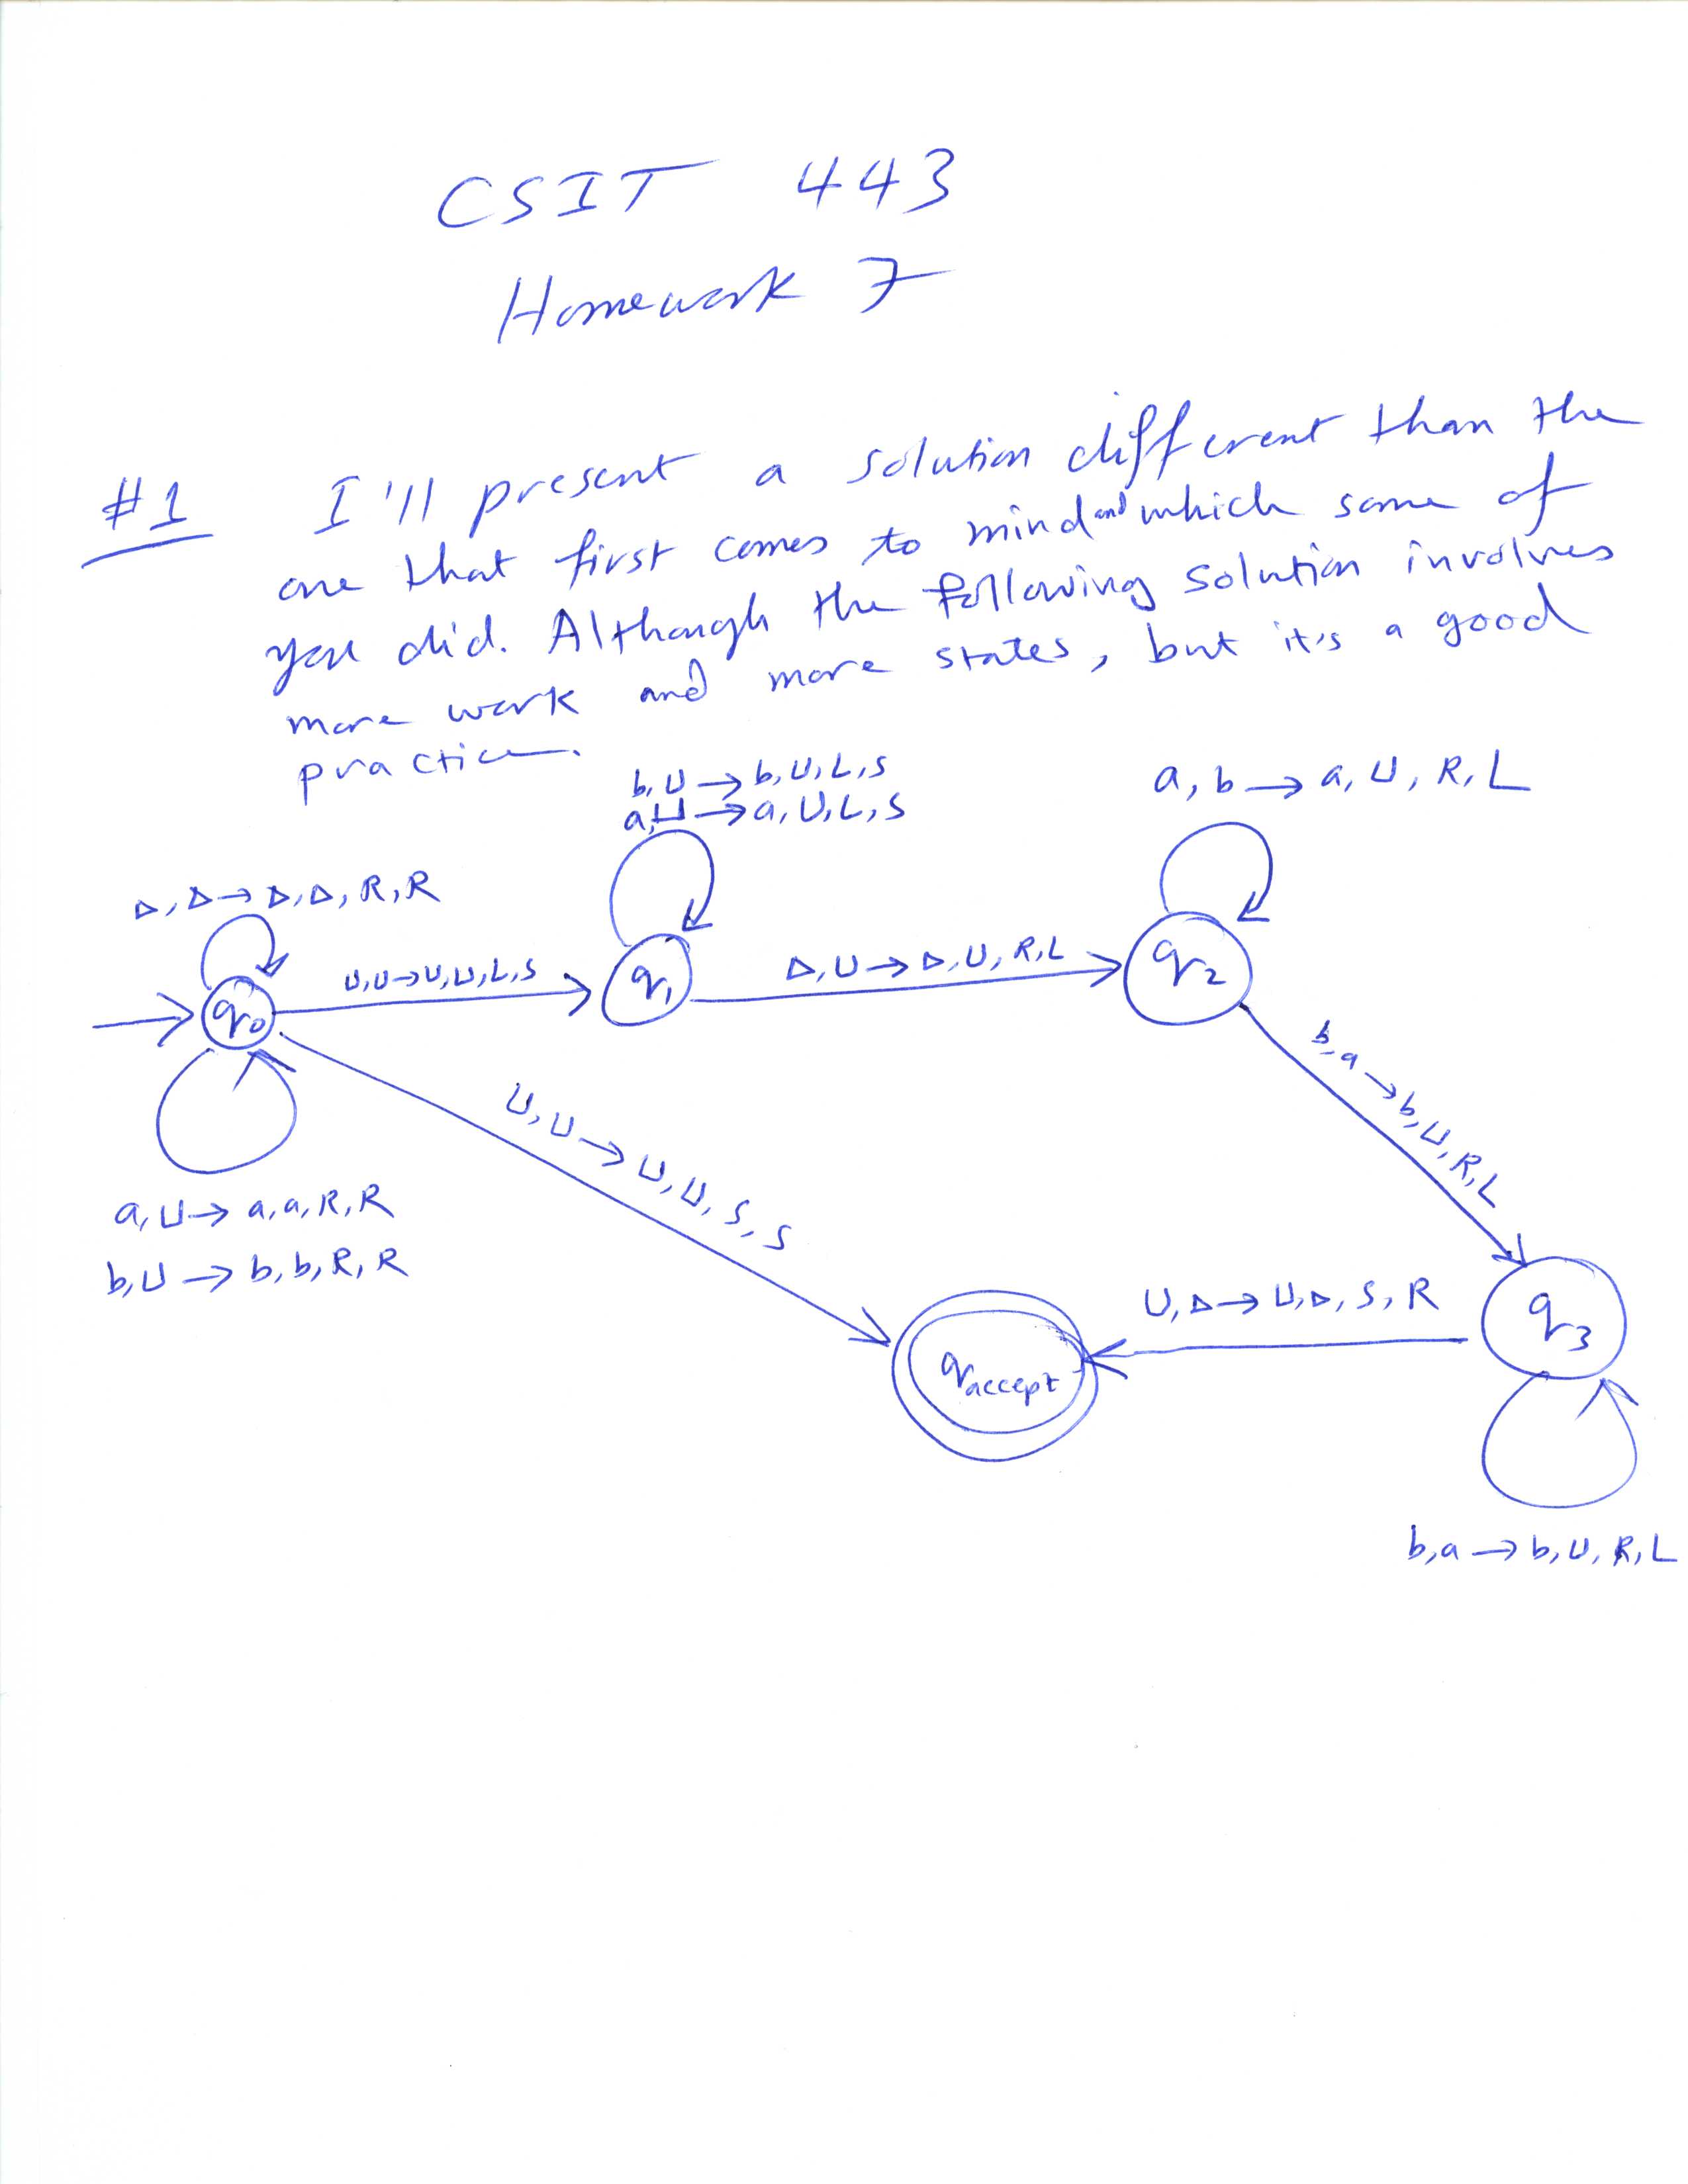 CSIT 443
Homework 7
#1 I'll present a solution different than the
one that first comes to mind and which some of
you did. Although the following solution involves
more work and more states, but it's a good
practice.
b,⊔→b,⊔,L,S
a,⊔→a,⊔,L,S
a,b→a,⊔,R,L
▷,▷→▷,▷,R,R
⊔,⊔→⊔,⊔,L,S
▷,⊔→▷,⊔,R,L
q0
q1
q2
b,a→b,⊔,R,L
⊔,⊔→⊔,⊔,S,S
a,⊔→a,a,R,R
b,⊔→b,b,R,R
⊔,▷→⊔,▷,S,R
qaccept
q3
b,a→b,⊔,R,L